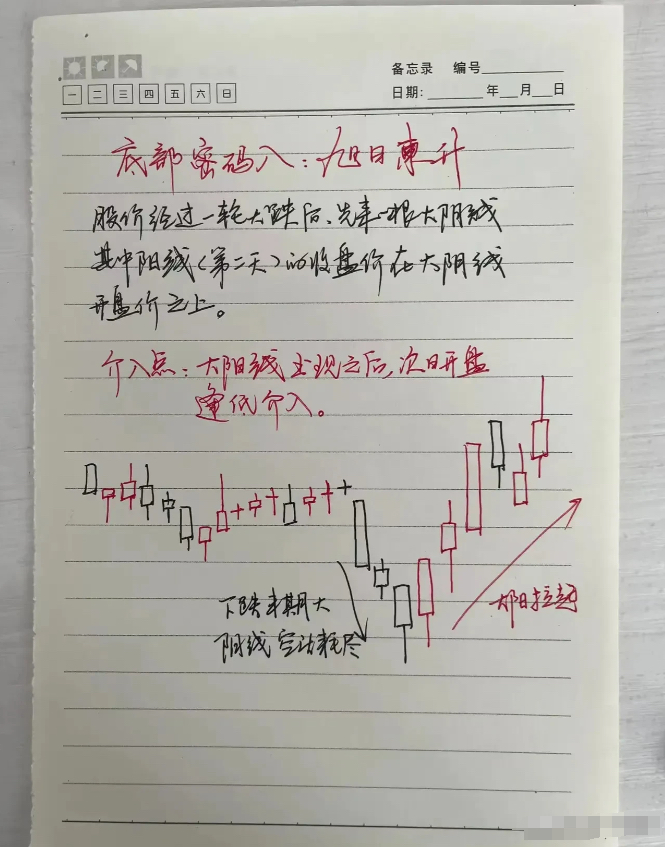 备忘录 编号
一 二 三 四 五 六 日
日期: 年 月 日
底部密码八:旭日東升
股价经过一轮大跌后、先来一根大阴线
其中阳线(第二天)的收盘价在大阴线
开盘价之上。
介入点:大阳线出现之后,次日开盘
逢低介入。
下跌末期大
阴线 空动耗尽
次日拉起